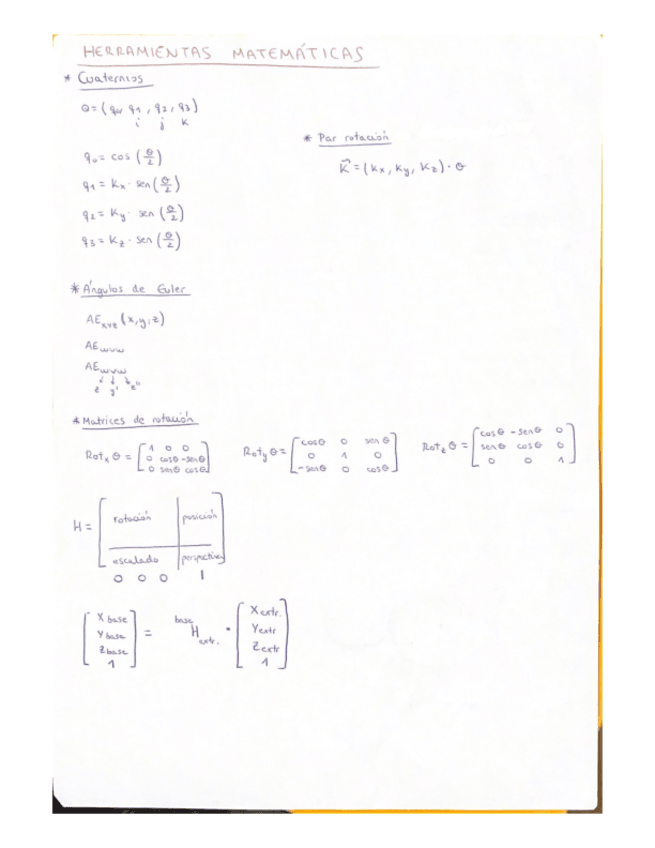 HERRAMIENTAS MATEMÁTICAS
* Cuaternios
Θ = (q₀, q₁, q₂, q₃)
i j k
q₀ = cos (θ/2)
q₁ = kx · sen (θ/2)
q₂ = ky · sen (θ/2)
q₃ = kz · sen (θ/2)
* Par rotación
K⃗ = (kx, ky, kz) · θ
* Ángulos de Euler
AE_xyz (x, y, z)
AE_wvw
AE_wvw
z y' z''
* Matrices de rotación
Rotx θ = [1 0 0
0 cosθ -senθ
0 senθ cosθ]
Roty θ = [cosθ 0 senθ
0 1 0
-senθ 0 cosθ]
Rotz θ = [cosθ -senθ 0
senθ cosθ 0
0 0 1]
H = [rotación | posición
escalado | perspectiva]
0 0 0 1
[Xbase
Ybase
Zbase
1] = ᵇᵃˢᵉH extr. · [Xextr.
Yextr
Zextr
1]